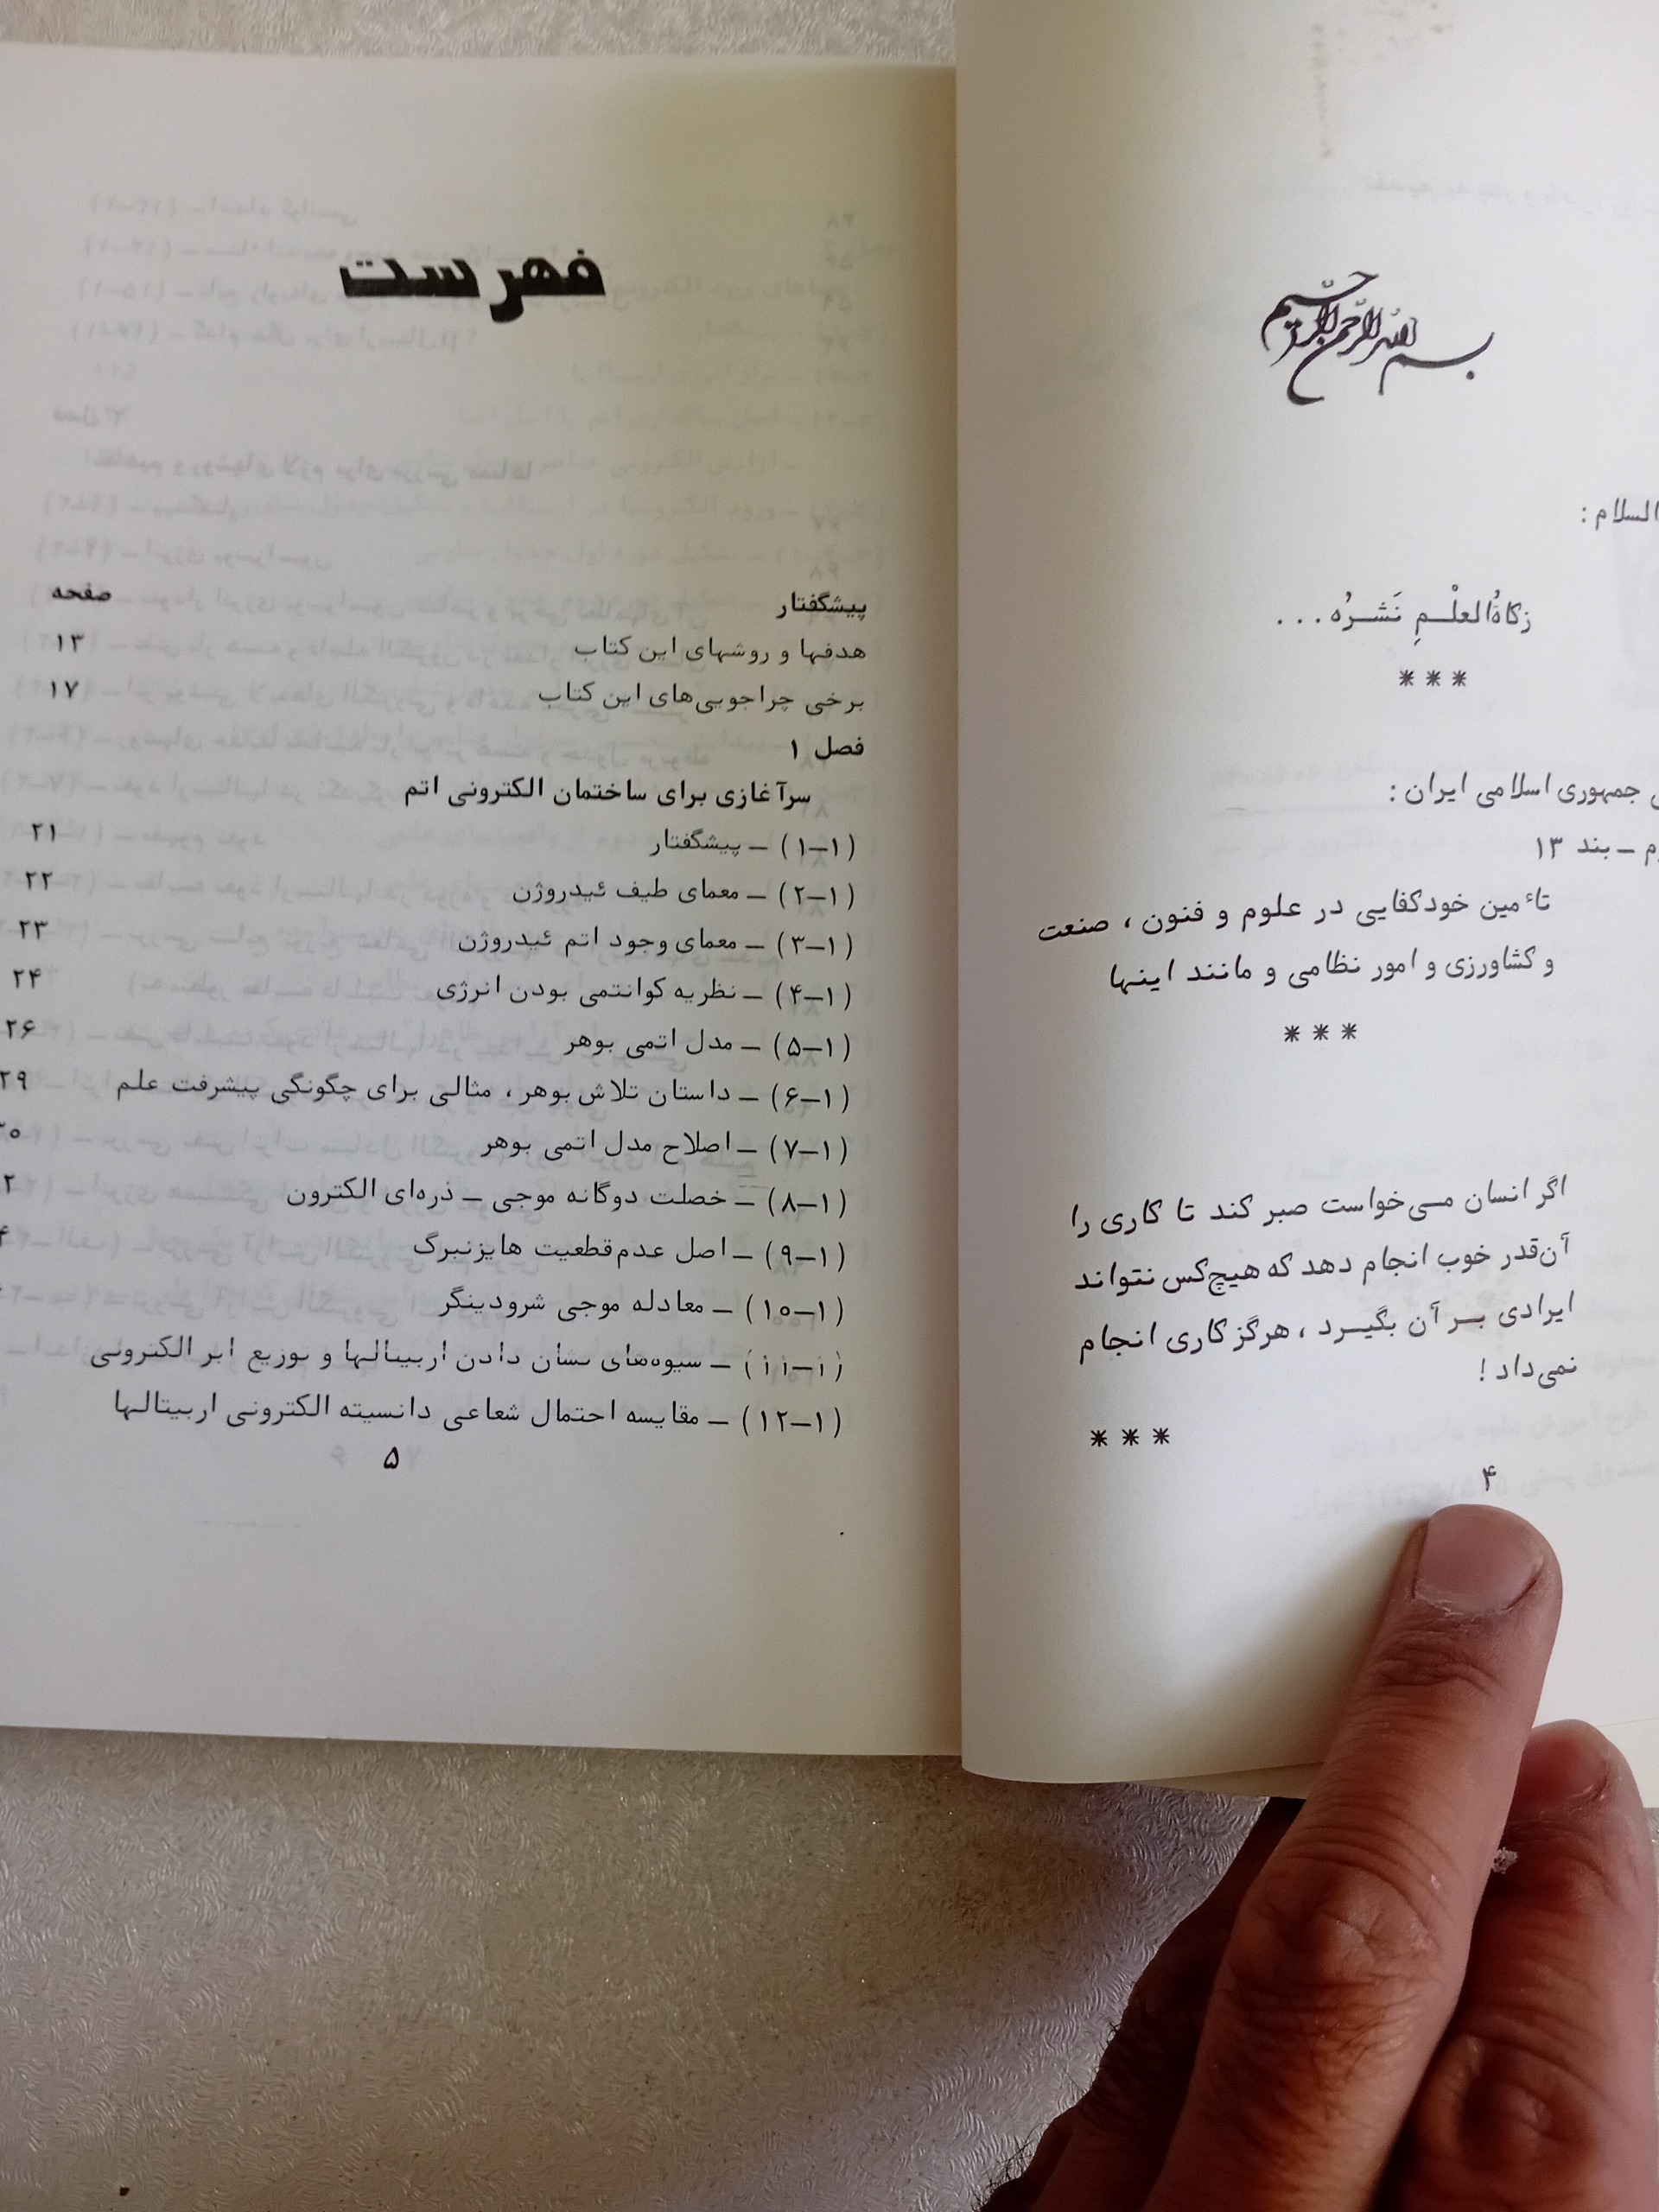 بسم الله الرحمن الرحیم
السلام :
زکاةُ العلْمِ نَشرُه ...
***
جمهوری اسلامی ایران :
بند ۱۳
تاٴمین خودکفایی در علوم و فنون ، صنعت
و کشاورزی و امور نظامی و مانند اینها
***
اگر انسان می‌خواست صبر کند تا کاری را
آن‌قدر خوب انجام دهد که هیچ‌کس نتواند
ایرادی بر آن بگیرد ، هرگز کاری انجام
نمی‌داد !
***
۴
فهرست
پیشگفتار صفحه
هدفها و روشهای این کتاب ۱۳
برخی چراجویی‌های این کتاب ۱۷
فصل ۱
سرآغازی برای ساختمان الکترونی اتم
(۱–۱) – پیشگفتار ۲۱
(۱–۲) – معمای طیف ئیدروژن ۲۲
(۱–۳) – معمای وجود اتم ئیدروژن ۲۳
(۱–۴) – نظریه کوانتمی بودن انرژی ۲۴
(۱–۵) – مدل اتمی بوهر ۲۶
(۱–۶) – داستان تلاش بوهر ، مثالی برای چگونگی پیشرفت علم ۲۹
(۱–۷) – اصلاح مدل اتمی بوهر
(۱–۸) – خصلت دوگانه موجی – ذره‌ای الکترون
(۱–۹) – اصل عدم‌قطعیت هایزنبرگ
(۱–۱۰) – معادله موجی شرودینگر
(۱–۱۱) – شیوه‌های نشان دادن اربیتالها و توزیع ابر الکترونی
(۱–۱۲) – مقایسه احتمال شعاعی دانسیته الکترونی اربیتالها
۵